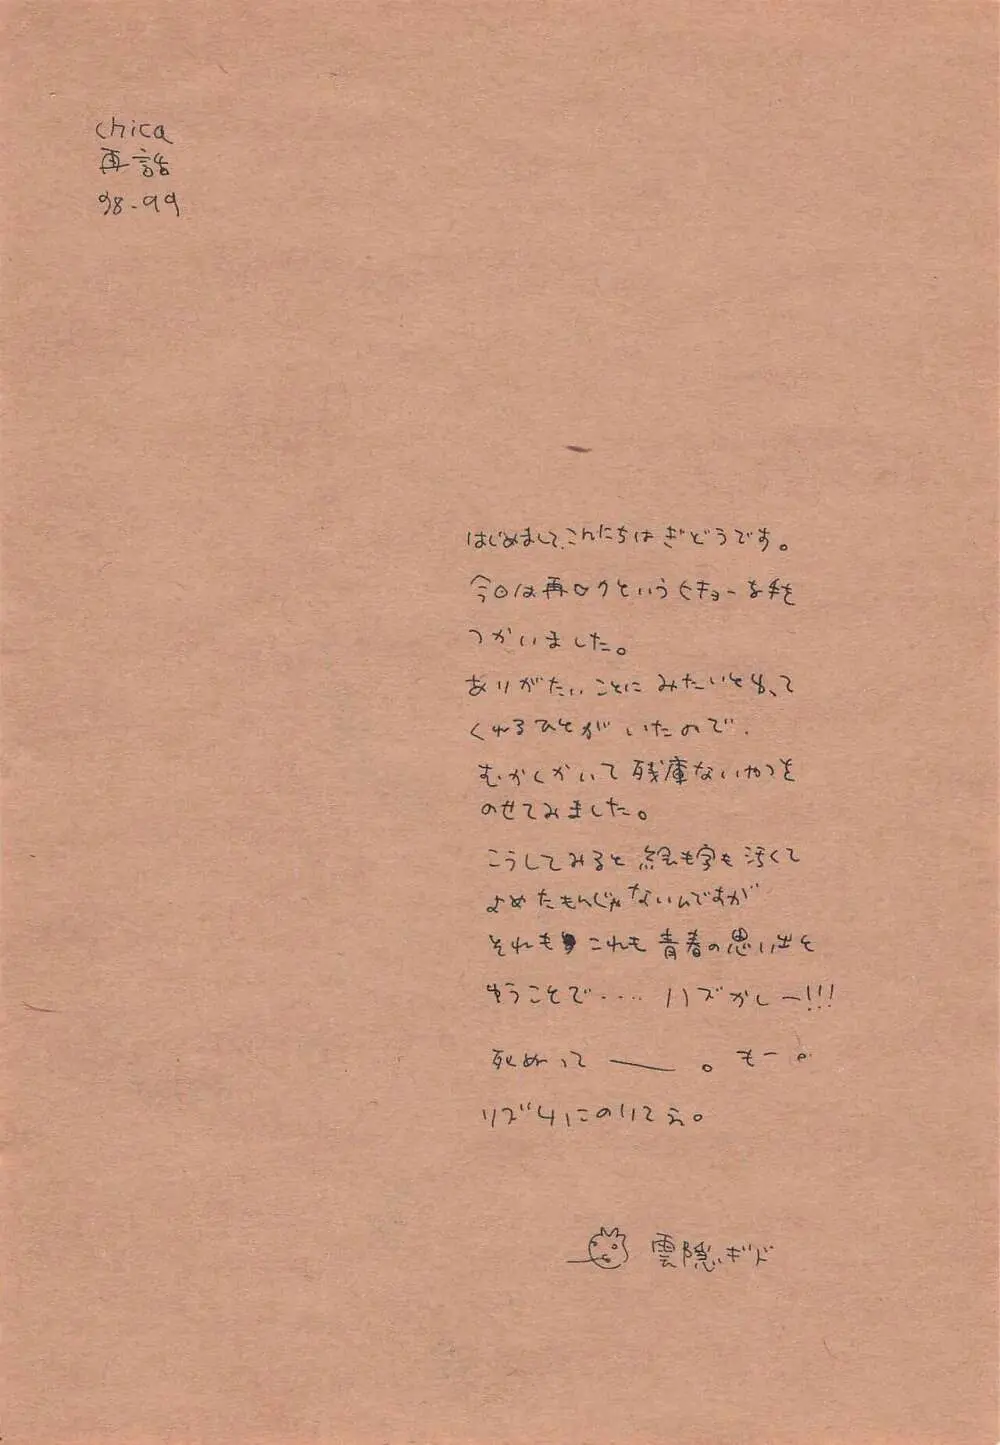 chica
再話
98-99
はじめまして、こんにちは ぎどうです。
今回は再ロクというヒキョーな手を
つかいました。
ありがたいことに みたいと思って
くれるひとが いたので、
むかしかいて 残庫ないやつを
のせてみました。
こうしてみると 絵も字も 汚くて
よめたもんじゃないんですが
それも これも 青春の思い出と
ゆうことで・・・・ ハズかしー!!!
死ぬって ——。 もー。
リズムにのりてえ。
雲隠ギド